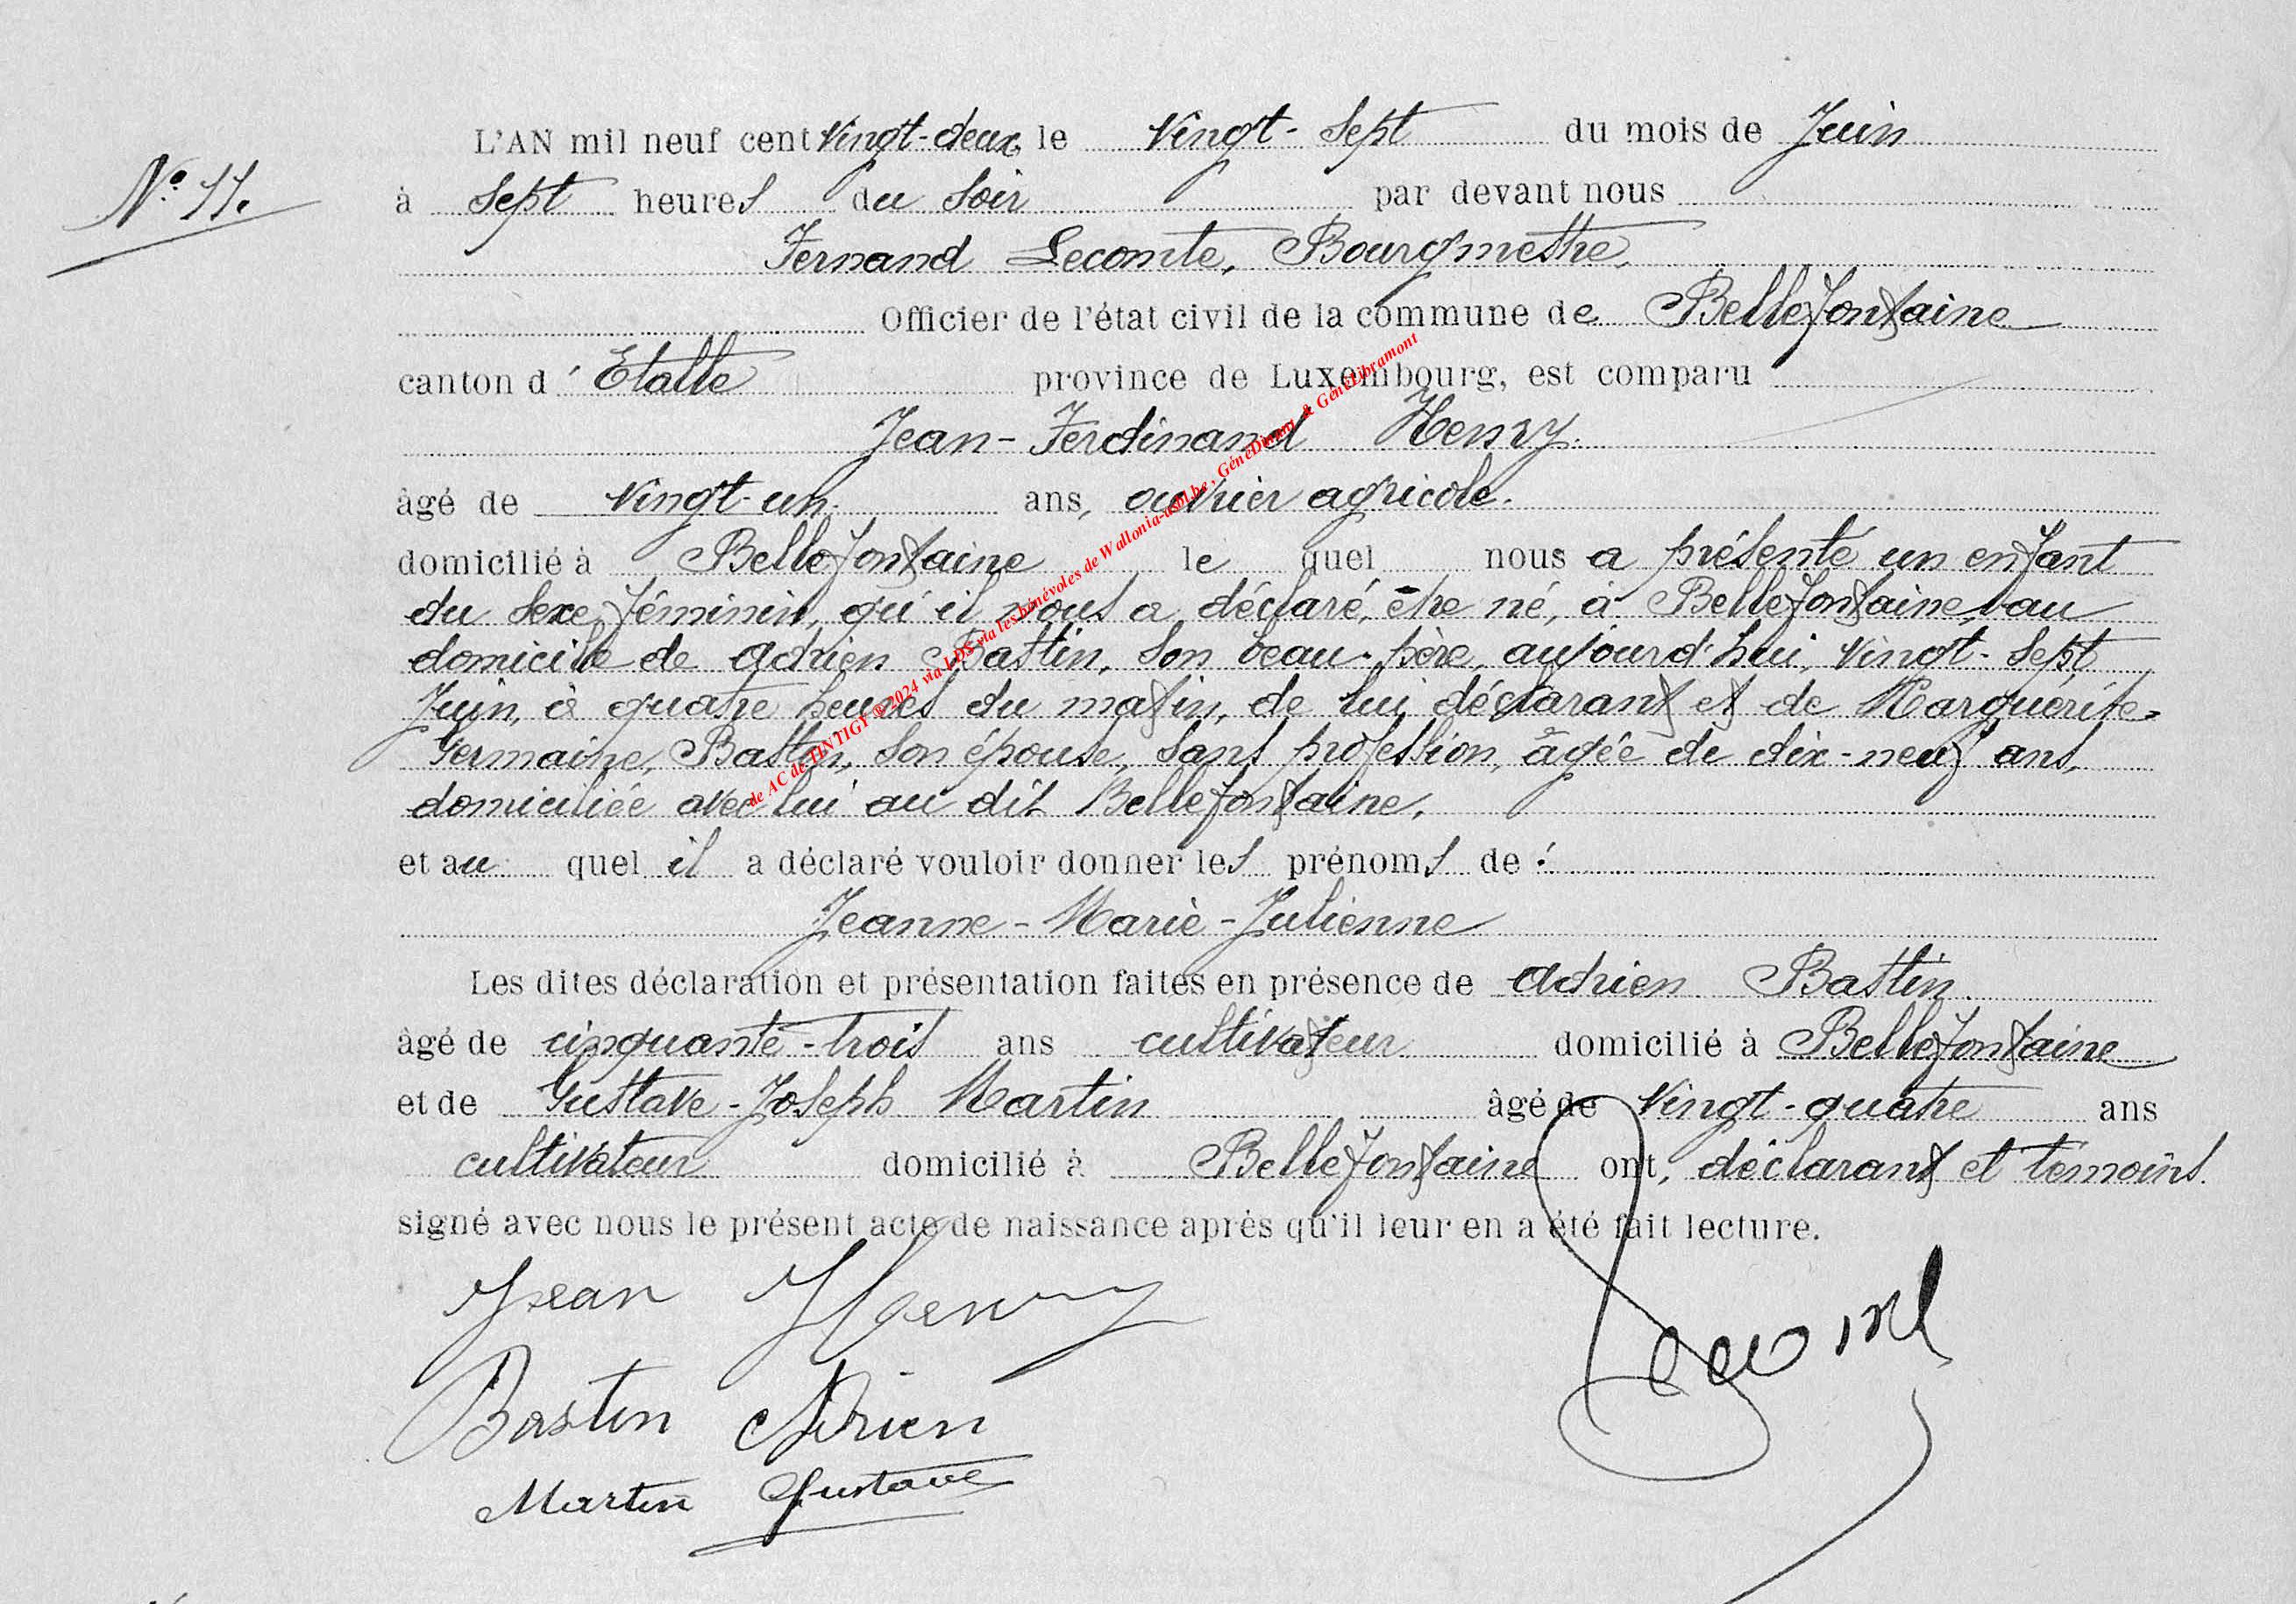 L'AN mil neuf cent Vingt-deux le Vingt-Sept du mois de Juin
N° 11.
à Sept heures du Soir par devant nous
Fernand Lecomte, Bourgmestre,
Officier de l'état civil de la commune de Bellefontaine
canton d'Etalle province de Luxembourg, est comparu
Jean-Ferdinand Henry.
âgé de Vingt-un ans, ouvrier agricole.
domicilié à Bellefontaine le quel nous a présenté un enfant
du Sexe féminin, qu'il nous a déclaré, être né, à Bellefontaine, au
domicile de Adrien Bastin, Son beau-père, aujourd'hui, Vingt-Sept
Juin, à quatre heures du matin, de lui déclarant et de Marguerite-
Germaine, Bastin, Son épouse, Sans profession, âgée de dix-neuf ans,
domiciliée avec lui au dit Bellefontaine.
et au quel il a déclaré vouloir donner les prénoms de :
Jeanne-Marie-Julienne
Les dites déclaration et présentation faites en présence de Adrien Bastin
âgé de cinquante-trois ans cultivateur domicilié à Bellefontaine
et de Gustave-Joseph Martin âgé de Vingt-quatre ans
cultivateur domicilié à Bellefontaine ont, déclarant et témoins
signé avec nous le présent acte de naissance après qu'il leur en a été fait lecture.
Jean Henry
Bastin Adrien
Martin Gustave
de AC de TINTIGY ® 2024 via LDS via les bénévoles de Wallonia-asbl.be, GénéDinant & GénéLibramont